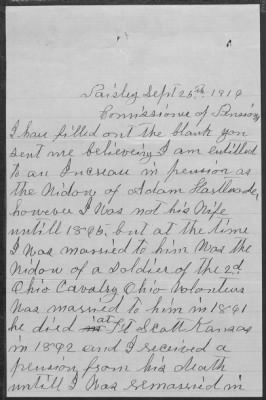 Paisley Sept 25th 1919
Comissioner of Pensions
I have filled out the blank you
sent me believeing I am entitled
to an Increase in pension as
the Widow of Adam
however I Was not his Wife
untill 1896. but at the time
I Was married to him Was the
Widow of a soldier of the 2d
Ohio Cavalry Ohio Volenteers
Was married to him in 1891
he died at Ft Scott Kansas
in 1892 and I received a
pension from his death
untill I Was remarried in